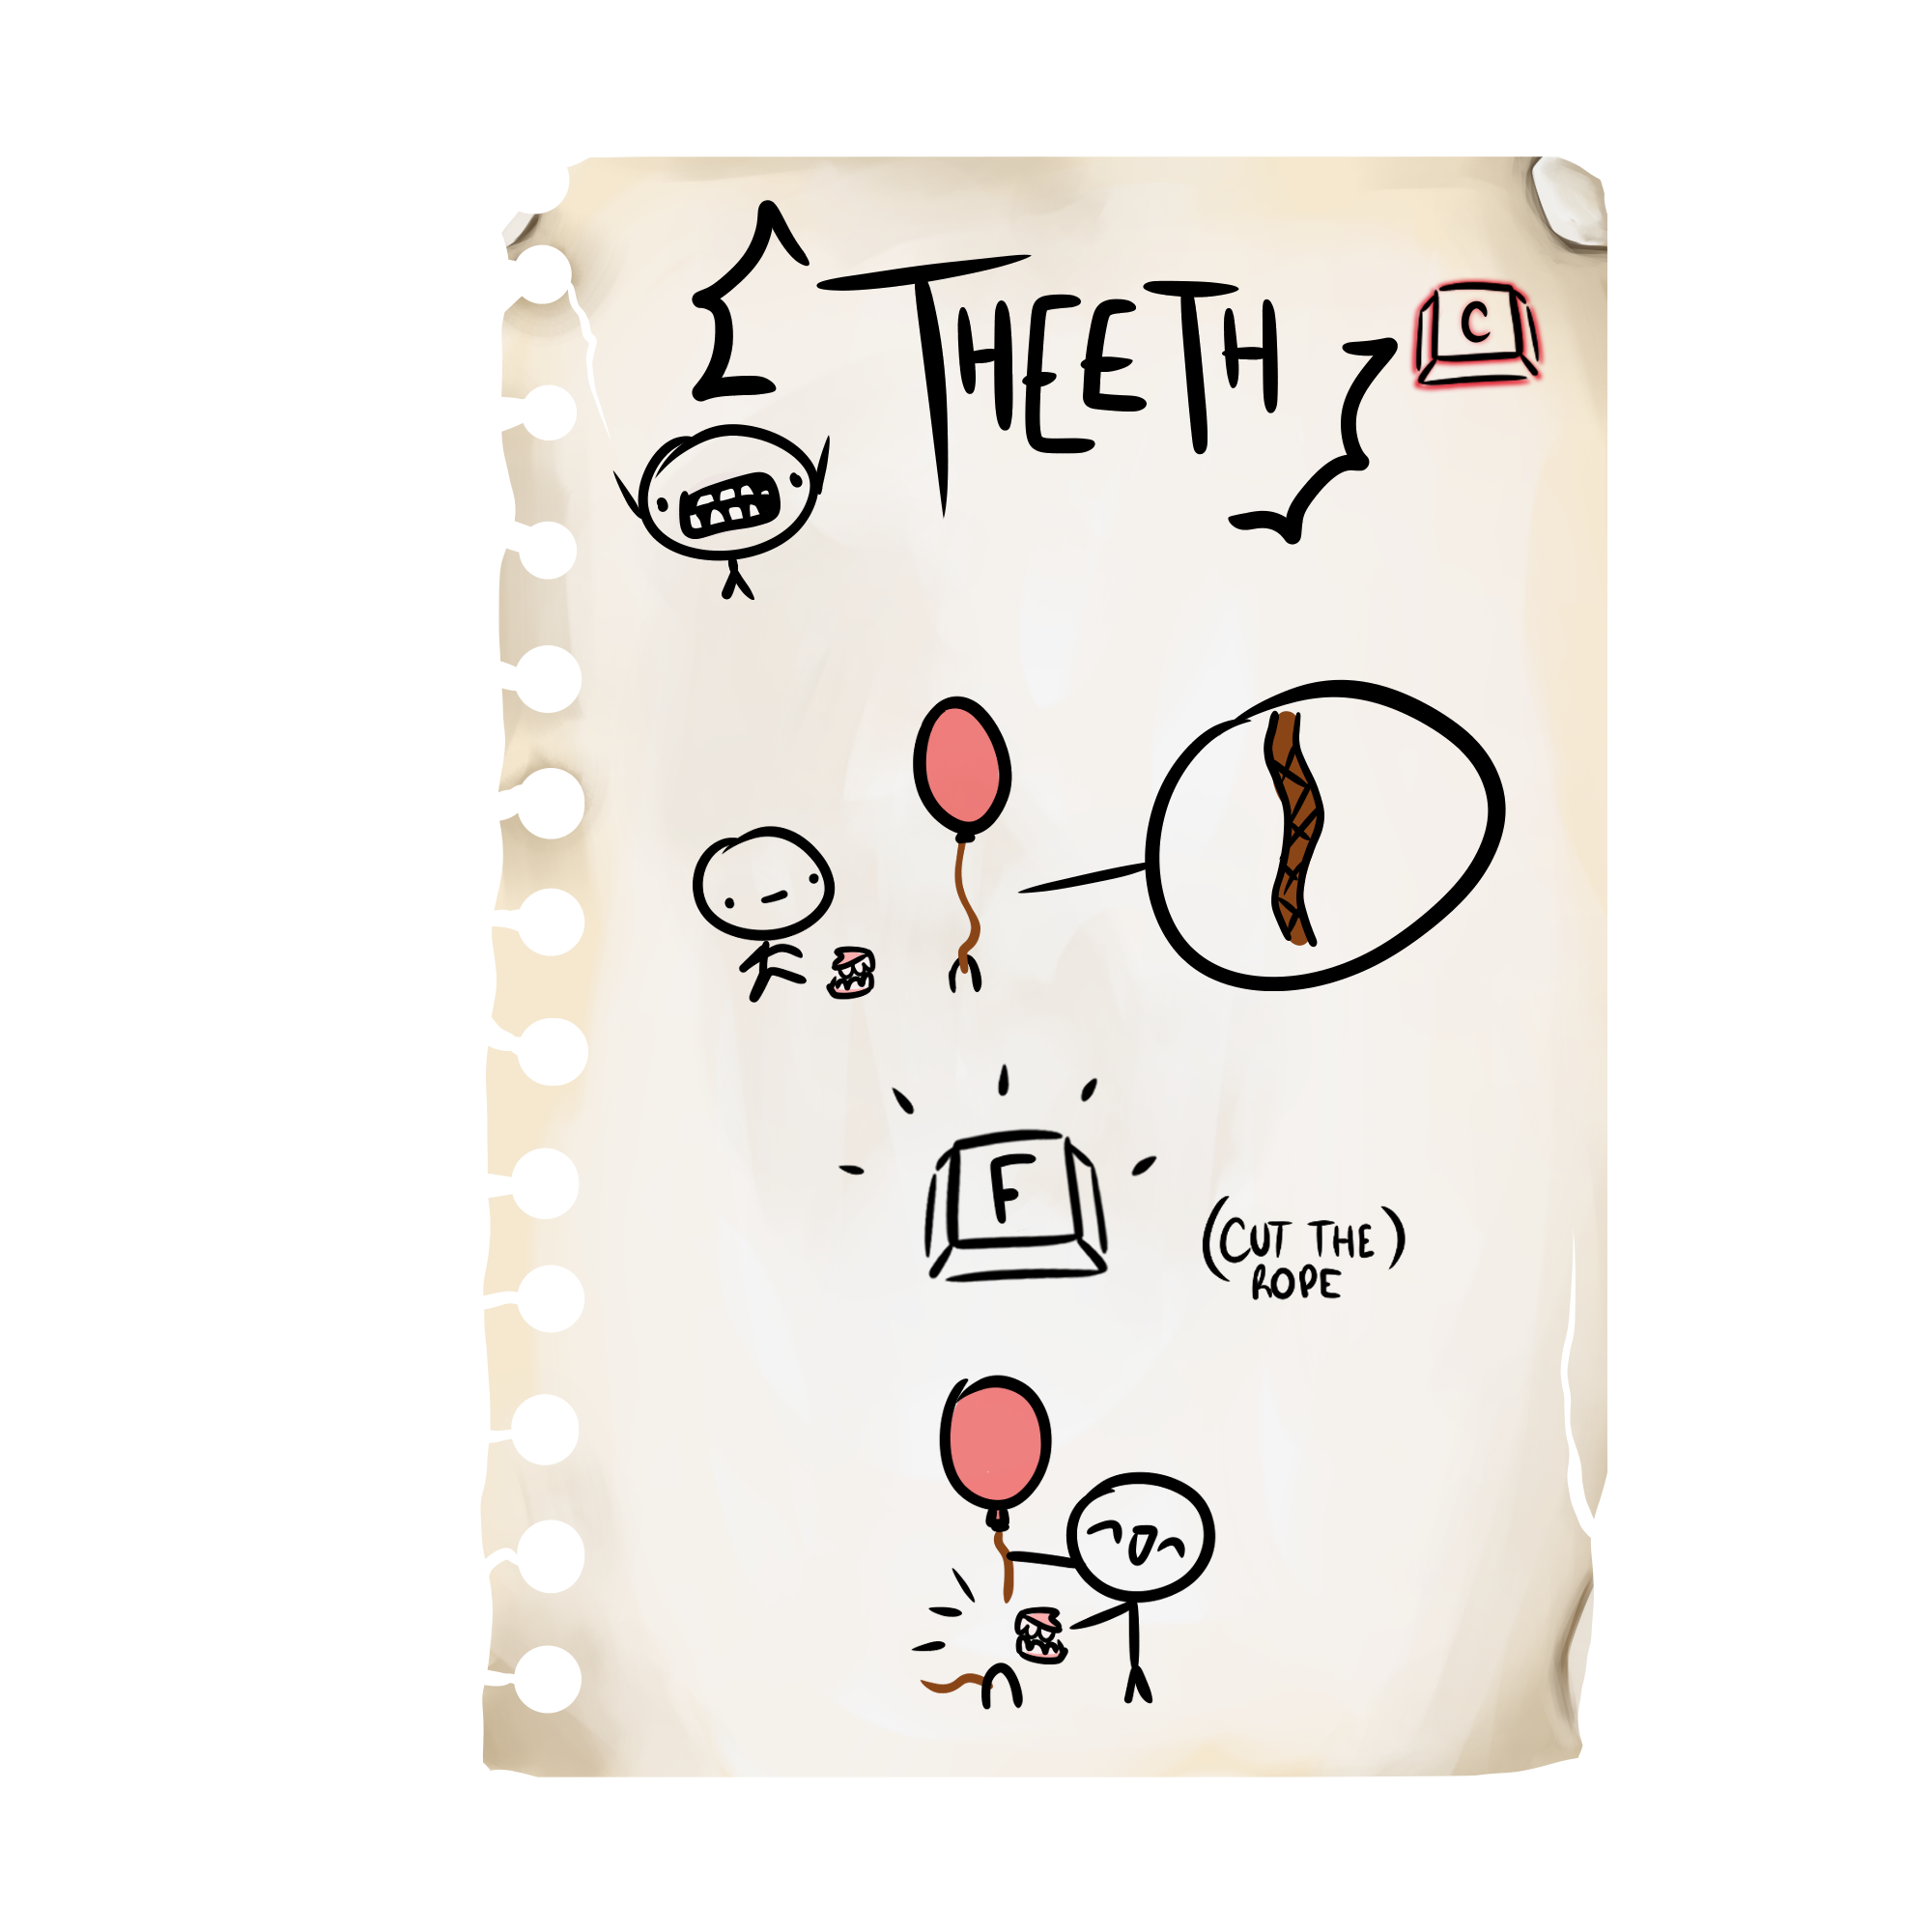 THEETH
C
F
(CUT THE)
ROPE